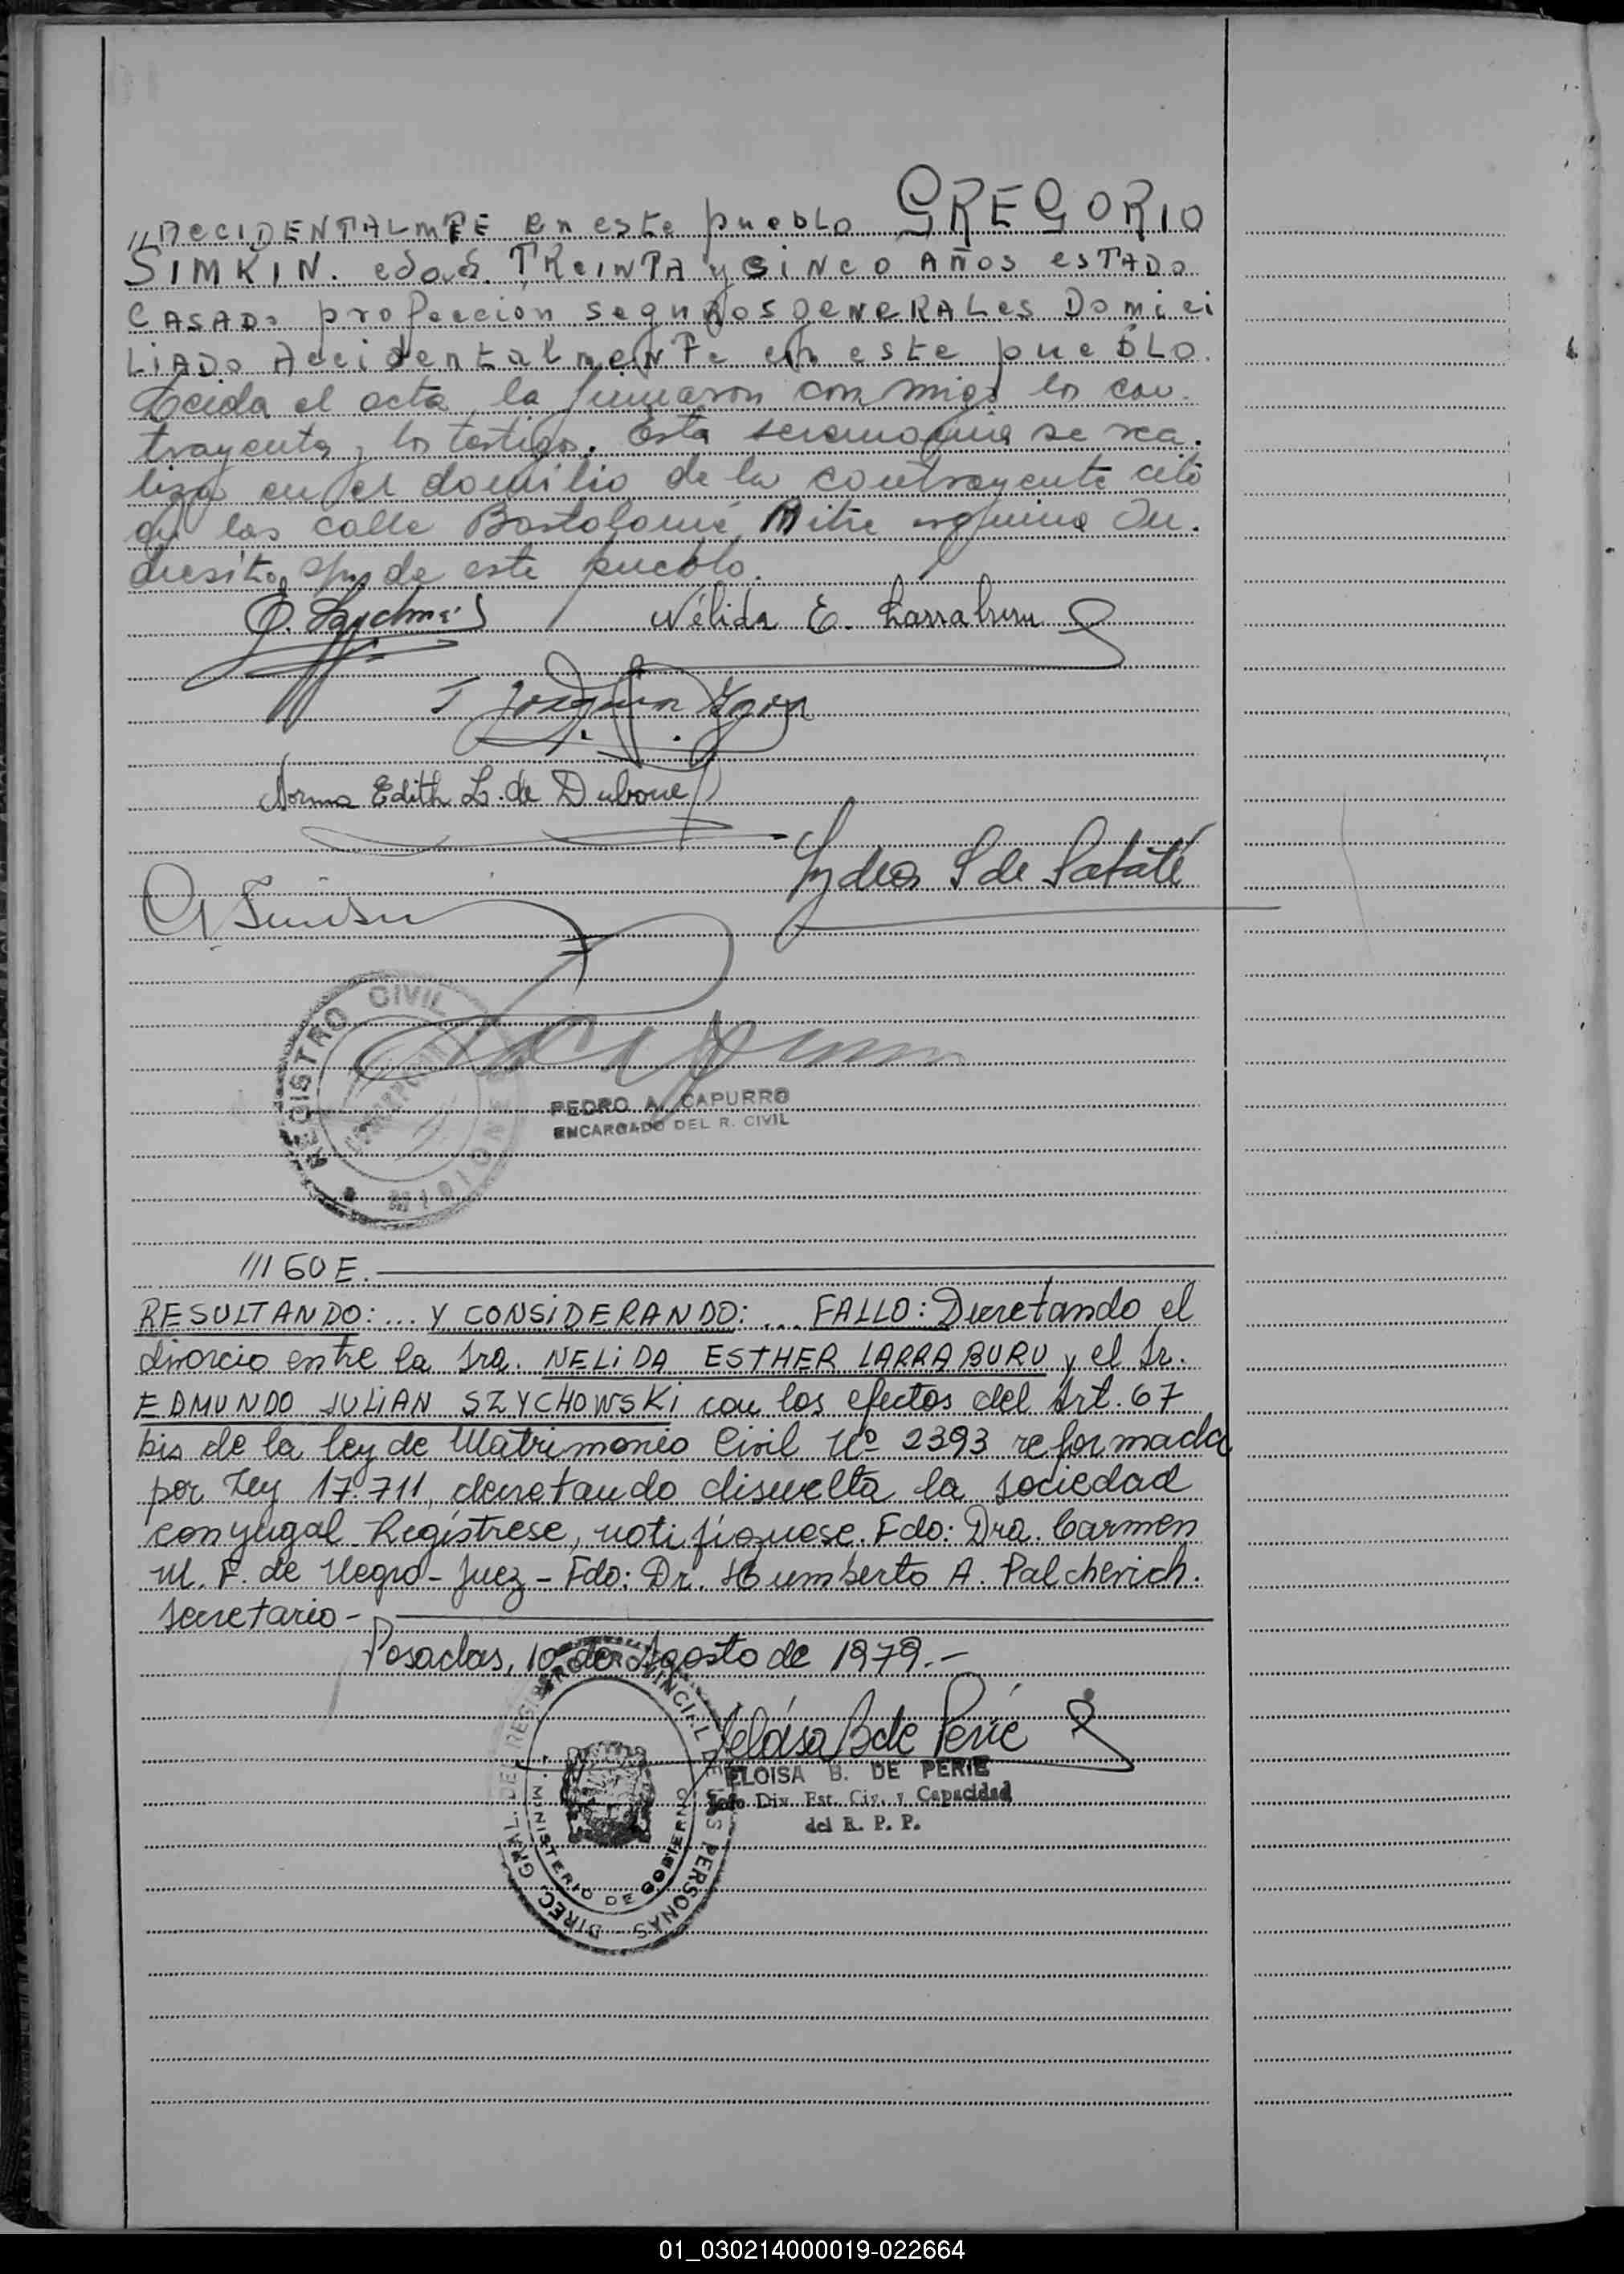 "ACCIDENTALmTE en este puebLo GREGORIO
SIMKIN. edad. TReINTA y CINCO AÑOS esTADo
CASADo profeccion segurosgeneRALes Domici
LiADo Accidentalmente en este puebLo.
Leida el acta, la firmaron conmigo los con-
trayentes y los testigos. Esta seremonia se rea-
liza en el domicilio de la contrayente cito
en las calle Bartolomé Mitre esquina
de este pueblo.
Nélida E. Larraburu
Joaquin
Norma Edith L. de Duboue
Lydia S de Sabaté
REGISTRO CIVIL
MISIONES
PEDRO A. CAPURRO
ENCARGADO DEL R. CIVIL
/// 60 E.
RESULTANDO: ... Y CONSiDERANDO: ... FALLO: Decretando el
divorcio entre la Sra. NELiDA ESTHER LARRABURU y el Sr.
EDMUNDO JULiAN SZYCHOWSKi con los efectos del Art. 67
bis de la ley de Matrimonio Civil Nº 2393 reformada
por Ley 17.711, decretando disuelta la sociedad
conyugal. Regístrese, notifíquese. Fdo: Dra. Carmen
M. F. de Negro - Juez - Fdo: Dr. Humberto A. Palcherich.
Secretario -
Posadas, 10 de Agosto de 1979.-
Eloisa B de Perié
ELOISA B. DE PERIE
Jefe Div. Est. Civ. y Capacidad
del R. P. P.
DIREC. GRAL. DEL REGISTRO PROVINCIAL DE LAS PERSONAS
MINISTERIO DE GOBIERNO
01_030214000019-022664